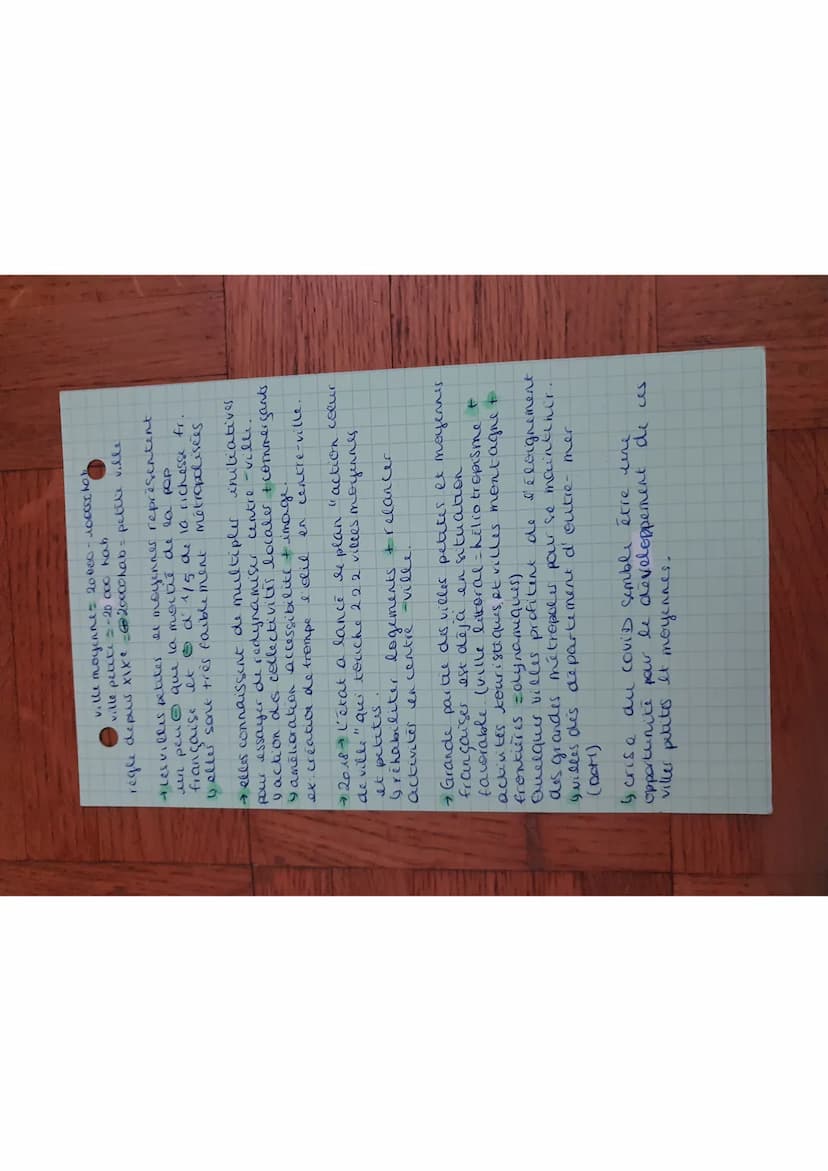 ville moyenne = 20000 - 100000 hab
ville petite = - 20 000 hab
règle depuis XIXe = ⊖ 2000 hab = petite ville
→ les villes petites et moyennes représentent
un peu ⊖ que la moitié de la pop
française et ⊖ d'1/5 de la richesse fr.
↳ elles sont très faiblement métropolisées
→ elles connaissent de multiples initiatives
pour essayer de redynamiser centre-ville.
↳ action des collectivités locales + commerçants
↳ amélioration accessibilité + image
ex: création de trompe l'œil en centre-ville.
→ 2018 → l'état a lancé le plan "action cœur
de ville" qui touche 222 villes moyennes
et petites.
↳ réhabiliter logements + relancer
activités en centre-ville.
→ Grande partie des villes petites et moyennes
françaises est déjà en situation
favorable (ville littoral = héliotropisme +
activités touristiques, et villes montagne +
frontières = dynamiques)
Quelques villes profitent de l'éloignement
des grandes métropoles pour se maintenir.
↳ villes des département d'outre-mer
(DOM)
↳ crise du COVID semble être une
opportunité pour le développement de ces
villes petites et moyennes.